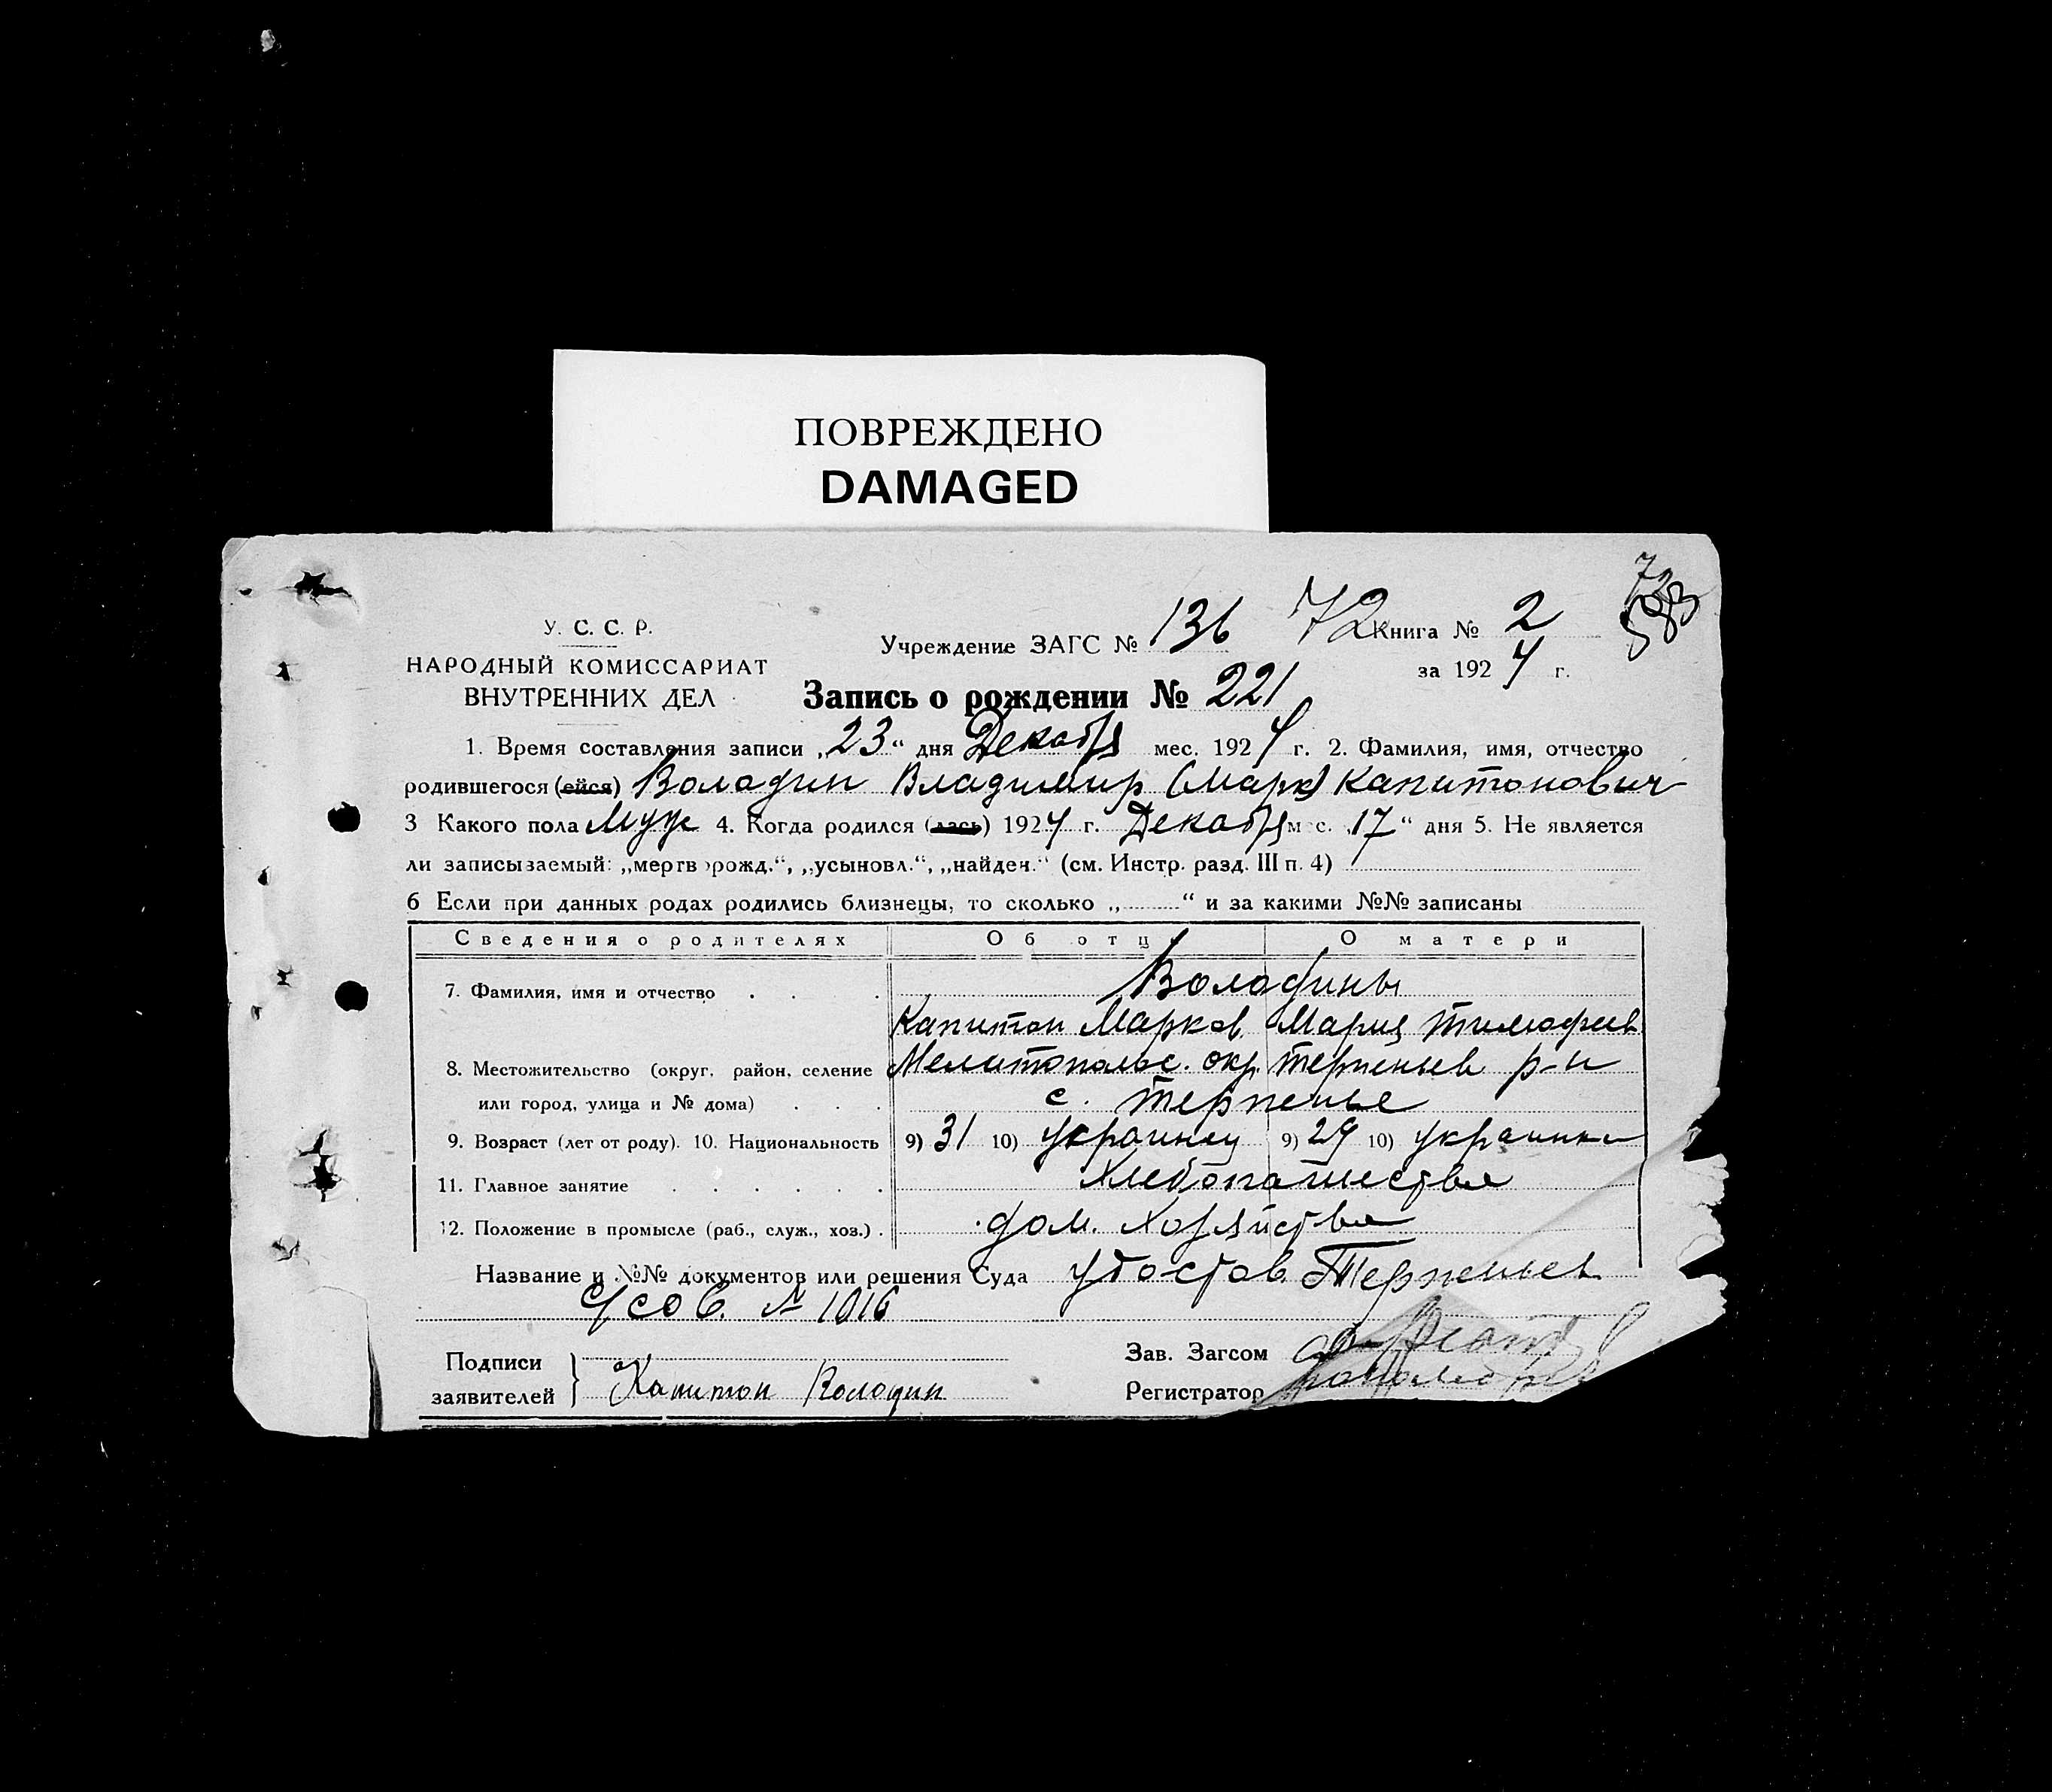 ПОВРЕЖДЕНО
DAMAGED
72
583
У. С. С. Р.
НАРОДНЫЙ КОМИССАРИАТ
ВНУТРЕННИХ ДЕЛ
Учреждение ЗАГС № 136 72 Книга № 2
за 1924 г.
Запись о рождении № 221
1. Время составления записи „23“ дня Декабря мес. 1924 г. 2. Фамилия, имя, отчество
родившегося (ейся) Володин Владимир (Марк) Капитонович
3 Какого пола Муж 4. Когда родился (лась) 1924 г. Декабря мес. „17“ дня 5. Не является
ли записываемый: „мертворожд.“, „усыновл.“, „найден.“ (см. Инстр. разд. III п. 4)
6 Если при данных родах родились близнецы, то сколько „ “ и за какими №№ записаны
Сведения о родителях Об отце О матери
7. Фамилия, имя и отчество Володины
Капитон Марков. Мария Тимофеев
8. Местожительство (округ, район, селение Мелитопольс. окр. Терпеньев р-н
или город, улица и № дома) с. Терпенье
9. Возраст (лет от роду). 10. Национальность 9) 31 10) украинец 9) 29 10) украинка
11. Главное занятие Хлебопашество
12. Положение в промысле (раб., служ., хоз.) дом. Хозяйство
Название и №№ документов или решения Суда удостов. Терпеньев
с/сов. № 1016
Подписи заявителей Капитон Володин
Зав. Загсом
Регистратор